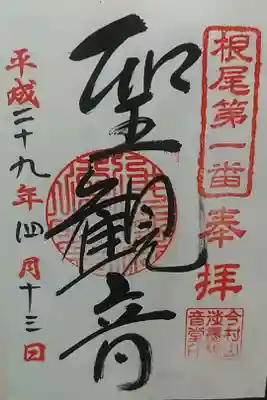 根尾第一番
奉拝
聖観音
平成二十九年四月十三日